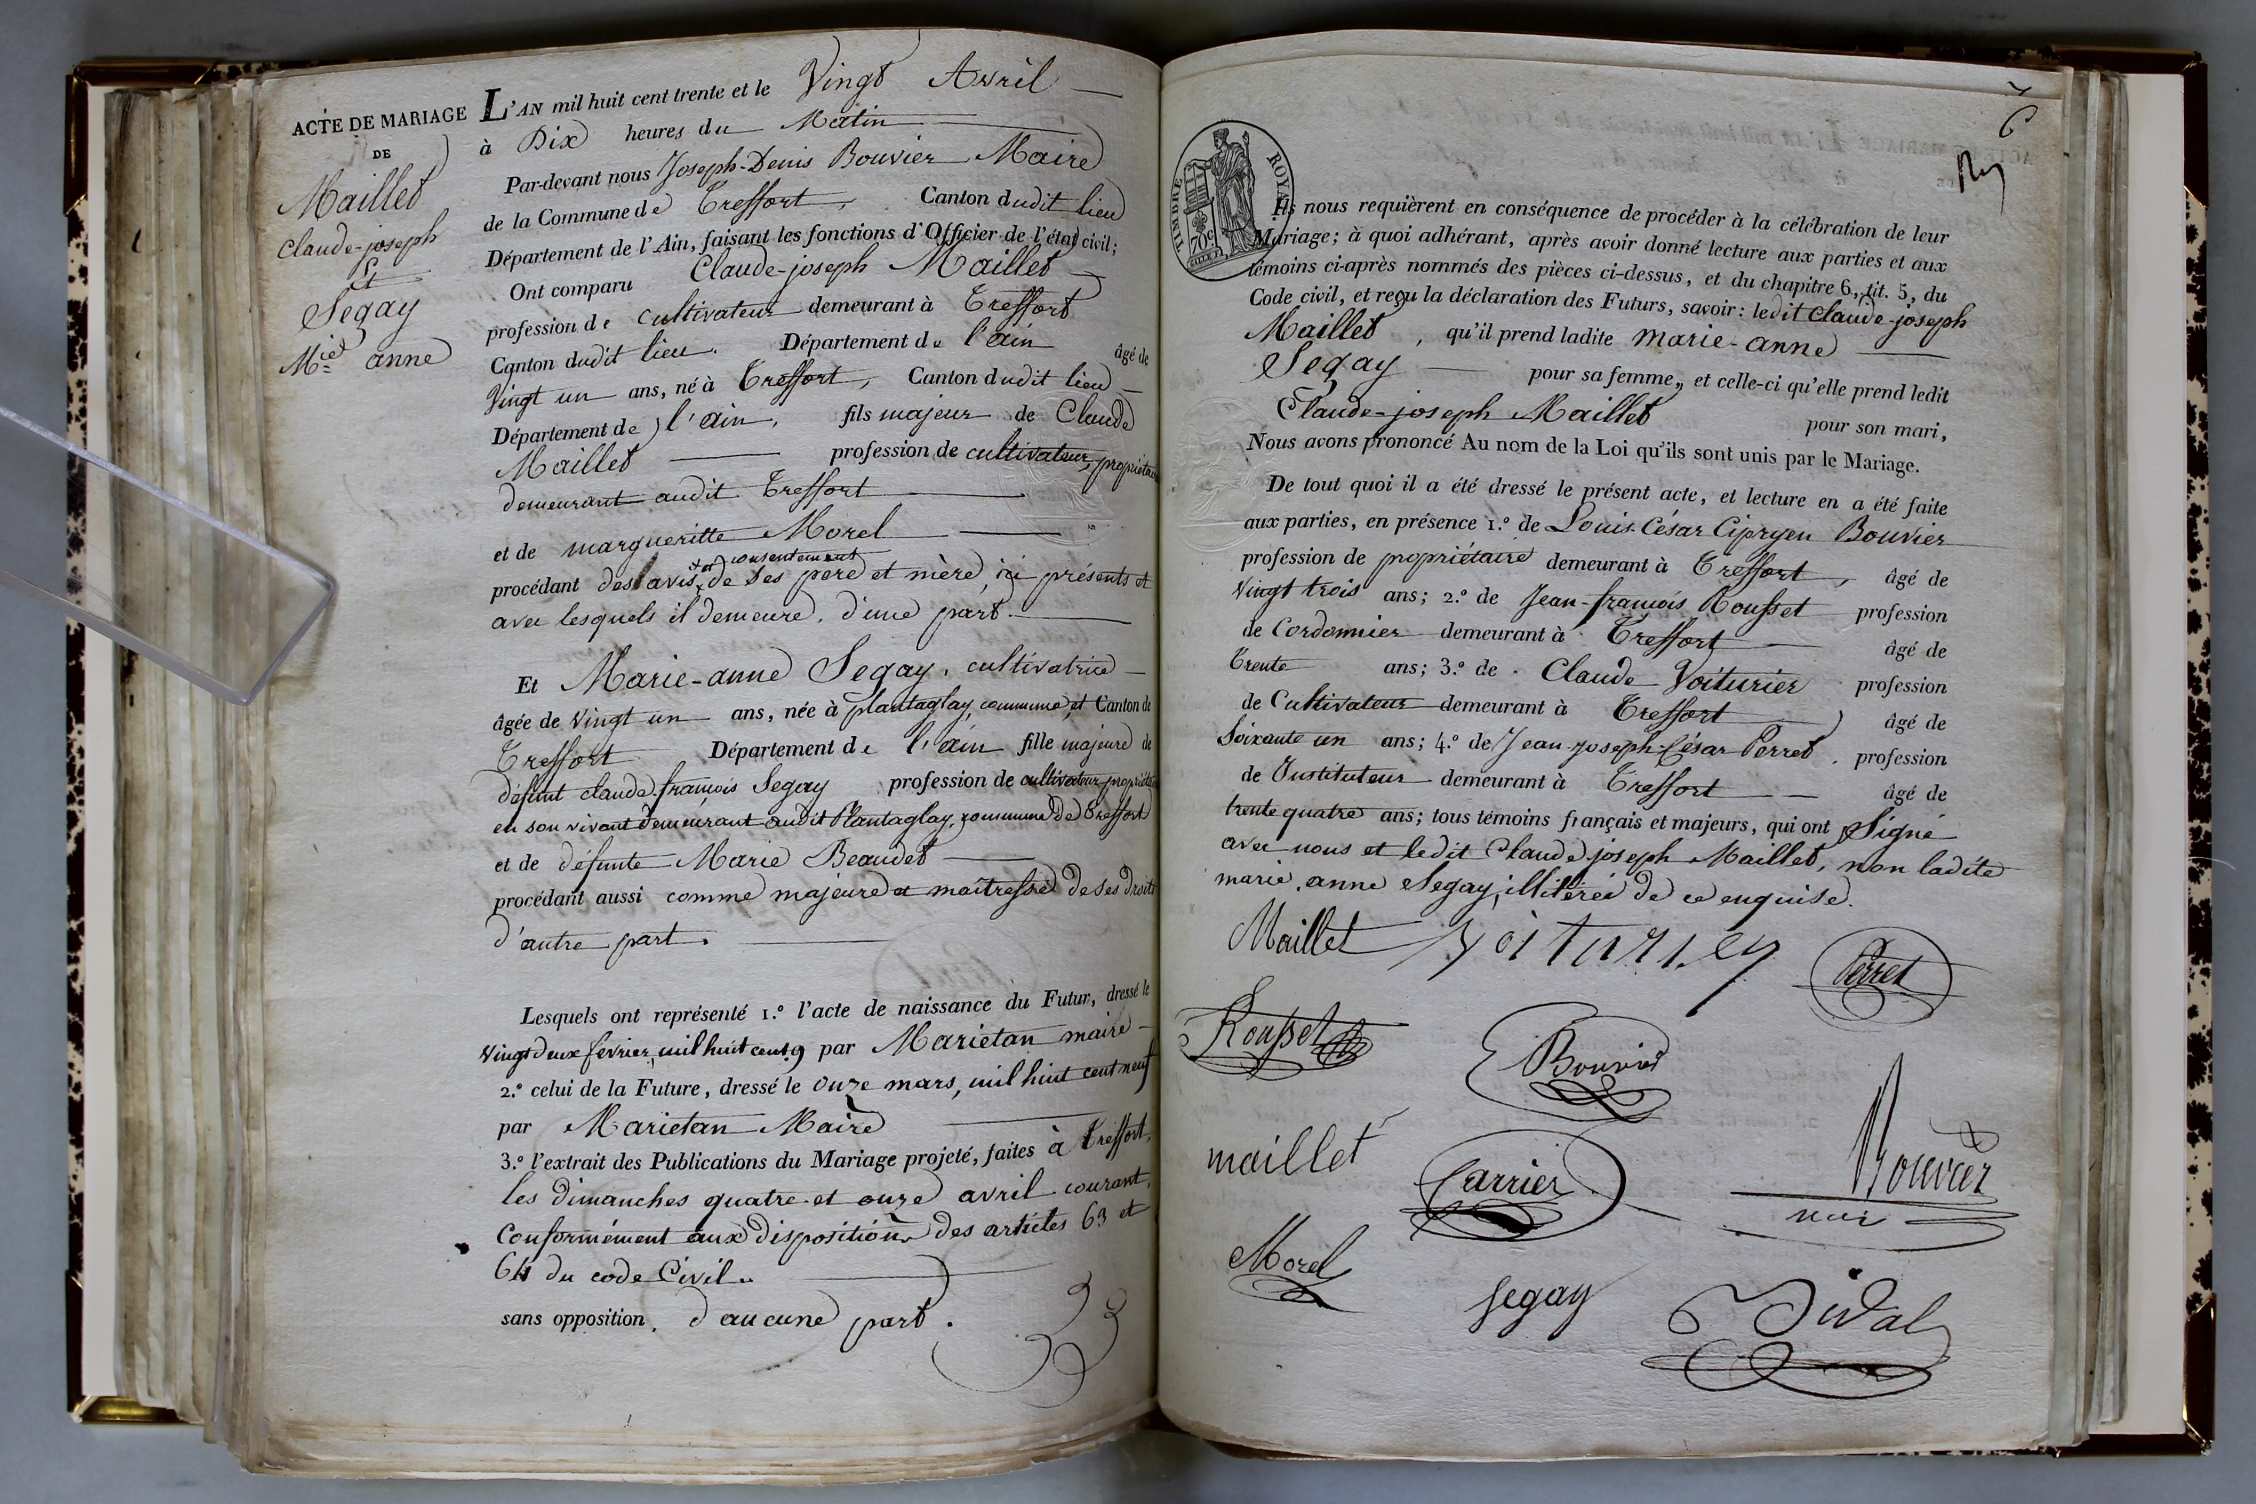 ACTE DE MARIAGE
DE
Maillet
Claude-joseph
Et
Segay
M.ie anne
L'AN mil huit cent trente et le Vingt Avril
à Dix heures du Matin
Par-devant nous Joseph-Denis Bouvier Maire
de la Commune de Treffort, Canton dudit lieu
Département de l'Ain, faisant les fonctions d'Officier de l'état civil;
Ont comparu Claude-joseph Maillet
profession de cultivateur demeurant à Treffort
Canton dudit lieu. Département de l'ain âgé de
Vingt un ans, né à Treffort, Canton dudit lieu
Département de l'ain, fils majeur de Claude
Maillet profession de cultivateur, propriétaire
demeurant audit Treffort
et de margueritte Morel
procédant des avis et consentement de ses pere et mère, ici présents et
avec lesquels il demeure, d'une part.
Et Marie-anne Segay, cultivatrice
âgée de Vingt un ans, née à plantaglay, commune et Canton de
Treffort Département de l'ain fille majeure de
défunt claude françois Segay profession de cultivateur propriétaire
en son vivant demeurant audit Plantaglay, commune de Treffort
et de défunte Marie Beaudet
procédant aussi comme majeure et maîtresse de ses droits
d'autre part.
Lesquels ont représenté 1.º l'acte de naissance du Futur, dressé le
Vingt deux fevrier mil huit cent 9 par Marietan maire
2.º celui de la Future, dressé le onze mars, mil huit cent neuf
par Marietan Maire
3.º l'extrait des Publications du Mariage projeté, faites à Treffort,
les dimanches quatre et onze avril courant,
Conformément aux dispositions des articles 63 et
64 du code Civil.
sans opposition, d'aucune part.
6
TIMBRE ROYAL
70c
Ils nous requièrent en conséquence de procéder à la célébration de leur
Mariage; à quoi adhérant, après avoir donné lecture aux parties et aux
témoins ci-après nommés des pièces ci-dessus, et du chapitre 6, tit. 5, du
Code civil, et reçu la déclaration des Futurs, savoir: ledit Claude-joseph
Maillet, qu'il prend ladite marie-anne
Segay pour sa femme, et celle-ci qu'elle prend ledit
Claude-joseph Maillet pour son mari,
Nous avons prononcé Au nom de la Loi qu'ils sont unis par le Mariage.
De tout quoi il a été dressé le présent acte, et lecture en a été faite
aux parties, en présence 1.º de Louis César Cipryen Bouvier
profession de propriétaire demeurant à Treffort, âgé de
Vingt trois ans; 2.º de Jean-françois Rousset profession
de Cordonnier demeurant à Treffort âgé de
Trente ans; 3.º de Claude Voiturier profession
de Cultivateur demeurant à Treffort âgé de
Soixante un ans; 4.º de Jean-joseph-César Perret, profession
de Instituteur demeurant à Treffort âgé de
trente quatre ans; tous témoins français et majeurs, qui ont Signé
avec nous et ledit Claude joseph Maillet, non ladite
marie anne Segay, illiterée de ce enquise.
Maillet Voiturier Perret
Rousset Bouvier
maillet Carrier Bouvier
Morel Segay Vidal